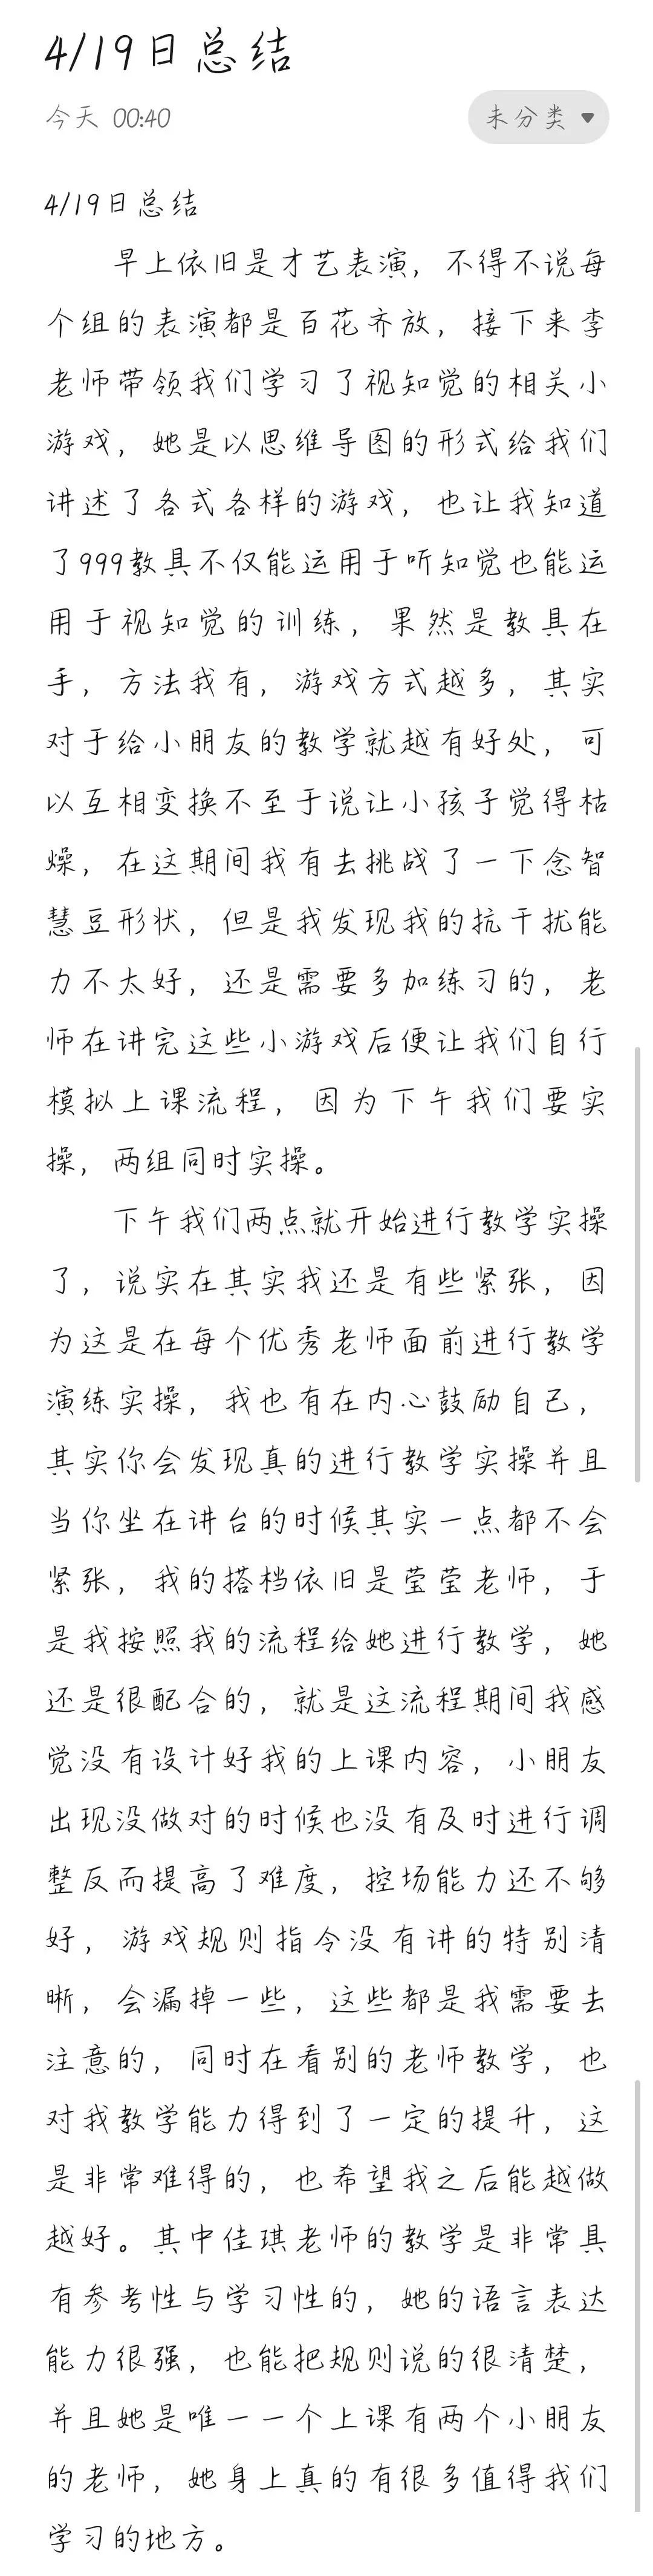 4/19日总结
今天 00:40
未分类
4/19日总结
早上依旧是才艺表演，不得不说每
个组的表演都是百花齐放，接下来李
老师带领我们学习了视知觉的相关小
游戏，她是以思维导图的形式给我们
讲述了各式各样的游戏，也让我知道
了999教具不仅能运用于听知觉也能运
用于视知觉的训练，果然是教具在
手，方法我有，游戏方式越多，其实
对于给小朋友的教学就越有好处，可
以互相变换不至于说让小孩子觉得枯
燥，在这期间我有去挑战了一下念智
慧豆形状，但是我发现我的抗干扰能
力不太好，还是需要多加练习的，老
师在讲完这些小游戏后便让我们自行
模拟上课流程，因为下午我们要实
操，两组同时实操。
下午我们两点就开始进行教学实操
了，说实在其实我还是有些紧张，因
为这是在每个优秀老师面前进行教学
演练实操，我也有在内心鼓励自己，
其实你会发现真的进行教学实操并且
当你坐在讲台的时候其实一点都不会
紧张，我的搭档依旧是莹莹老师，于
是我按照我的流程给她进行教学，她
还是很配合的，就是这流程期间我感
觉没有设计好我的上课内容，小朋友
出现没做对的时候也没有及时进行调
整反而提高了难度，控场能力还不够
好，游戏规则指令没有讲的特别清
晰，会漏掉一些，这些都是我需要去
注意的，同时在看别的老师教学，也
对我教学能力得到了一定的提升，这
是非常难得的，也希望我之后能越做
越好。其中佳琪老师的教学是非常具
有参考性与学习性的，她的语言表达
能力很强，也能把规则说的很清楚，
并且她是唯一一个上课有两个小朋友
的老师，她身上真的有很多值得我们
学习的地方。